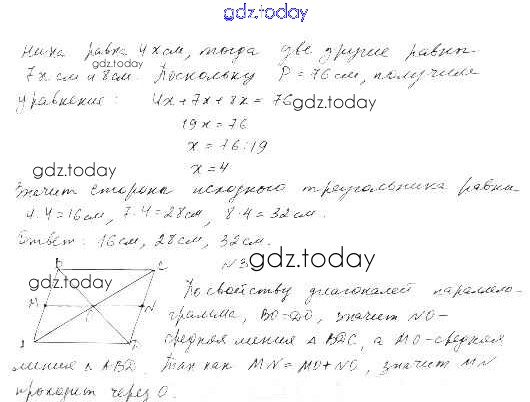 gdz.today
ника равна 4x см, тогда две другие равны
7x см и 8 см. Поскольку P = 76 см, получим
gdz.today
уравнение: 4x + 7x + 8x = 76
gdz.today
19x = 76
x = 76 : 19
x = 4
gdz.today
Значит стороны исходного треугольника равны
4·4=16 см, 7·4=28 см, 8·4=32 см.
Ответ: 16 см, 28 см, 32 см.
N3
gdz.today
gdz.today
B C
M N
По свойству диагоналей параллело-
грамма, BO=DO, значит NO-
средняя линия Δ BDC, а MO-средняя
линия Δ ABD. Так как MN=MO+NO, значит MN
проходит через O.